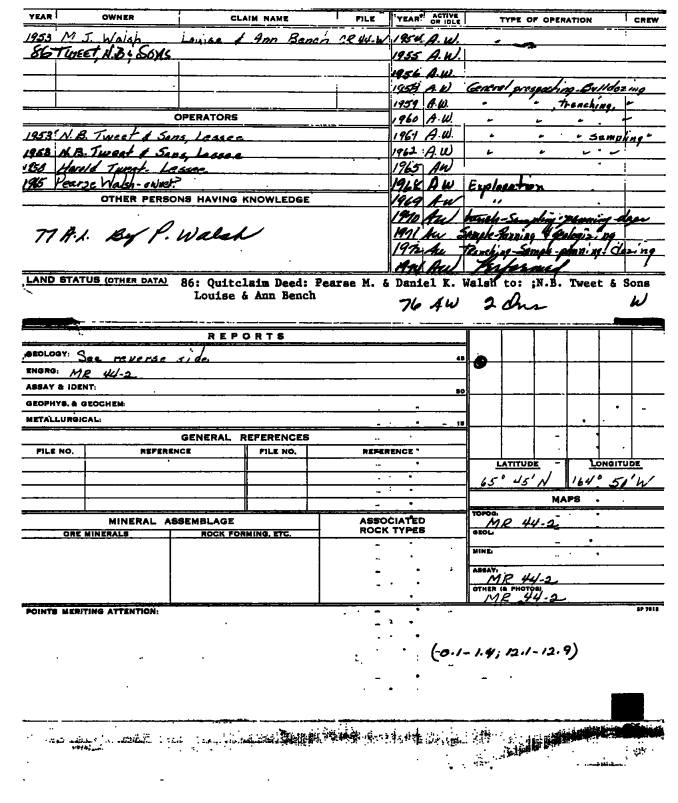 YEAR OWNER CLAIM NAME FILE YEAR ACTIVE OR IDLE TYPE OF OPERATION CREW
1953 M J. Walsh Louise & Ann Bench MR 44-W 1954 A.W.
86 TWEET, N.B & SONS 1955 A.W.
1956 A.W.
1958 A W General prospecting-Bulldozing
1959 A.W. " " , trenching, "
OPERATORS 1960 A.W. " " " "
1953 N.B. Tweet & Sons, Lessee 1961 A.W. " " " " sampling "
1958 N.B. Tweet & Sons, Lessee 1962 A.W " " " "
Harold Tweet Lessee 1965 AW
1965 Pearse Walsh-owner? 1968 A W Exploration
OTHER PERSONS HAVING KNOWLEDGE 1969 AW "
1970 AW Sampling-panning
77 A.L. By P. Walsh 1971 AW Sample-Panning & Geologizing
1972 AW Trenching-Sample-panning. dozing
AW Performed
LAND STATUS (OTHER DATA) 86: Quitclaim Deed: Pearse M. & Daniel K. Walsh to: ;N.B. Tweet & Sons
Louise & Ann Bench
76 AW 2 W
REPORTS
GEOLOGY: See reverse side. 45
ENGRG: MR 44-2
ASSAY & IDENT: 80
GEOPHYS. & GEOCHEM:
METALLURGICAL: 15
GENERAL REFERENCES
FILE NO. REFERENCE FILE NO. REFERENCE
LATITUDE LONGITUDE
65° 45' N 164° 50' W
MAPS
MINERAL ASSEMBLAGE ASSOCIATED ROCK TYPES
ORE MINERALS ROCK FORMING, ETC.
TOPOG: MR 44-2
GEOL:
MINE:
ASSAY: MR 44-2
OTHER (& PHOTOS) MR 44-2
POINTS MERITING ATTENTION:
(-0.1-1.4; 12.1-12.9)